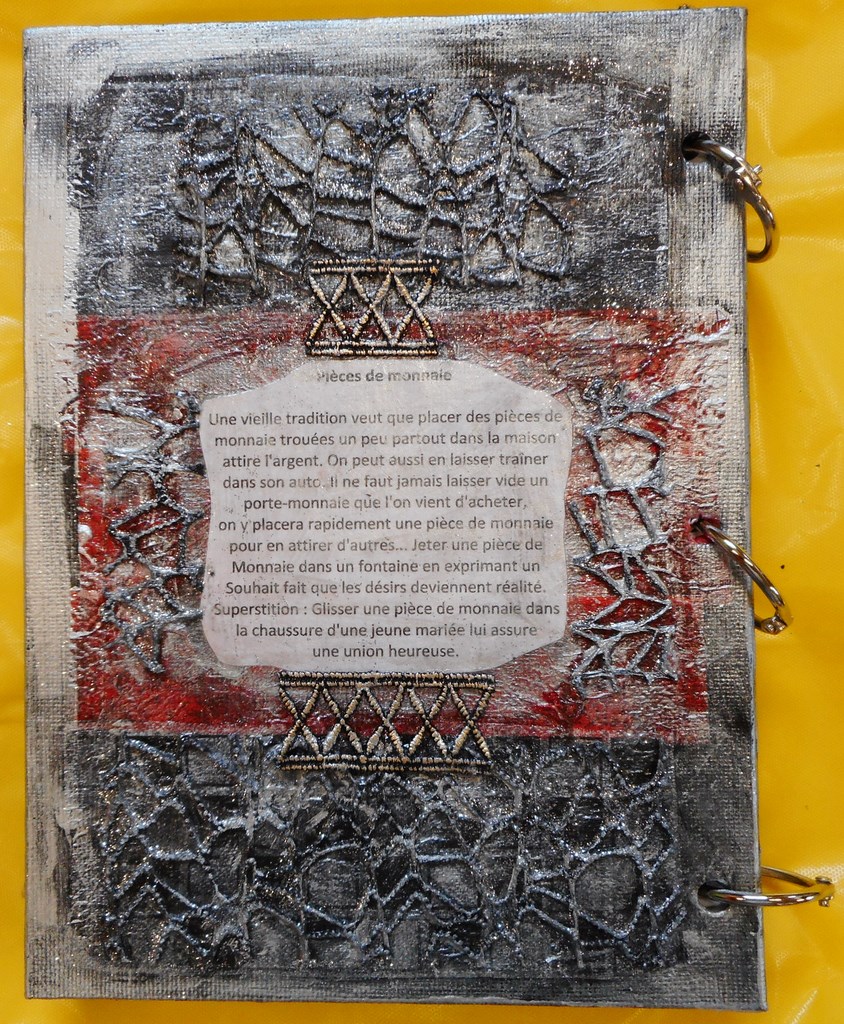 Pièces de monnaie
Une vieille tradition veut que placer des pièces de
monnaie trouées un peu partout dans la maison
attire l'argent. On peut aussi en laisser traîner
dans son auto. Il ne faut jamais laisser vide un
porte-monnaie que l'on vient d'acheter,
on y placera rapidement une pièce de monnaie
pour en attirer d'autres... Jeter une pièce de
Monnaie dans un fontaine en exprimant un
Souhait fait que les désirs deviennent réalité.
Superstition : Glisser une pièce de monnaie dans
la chaussure d'une jeune mariée lui assure
une union heureuse.